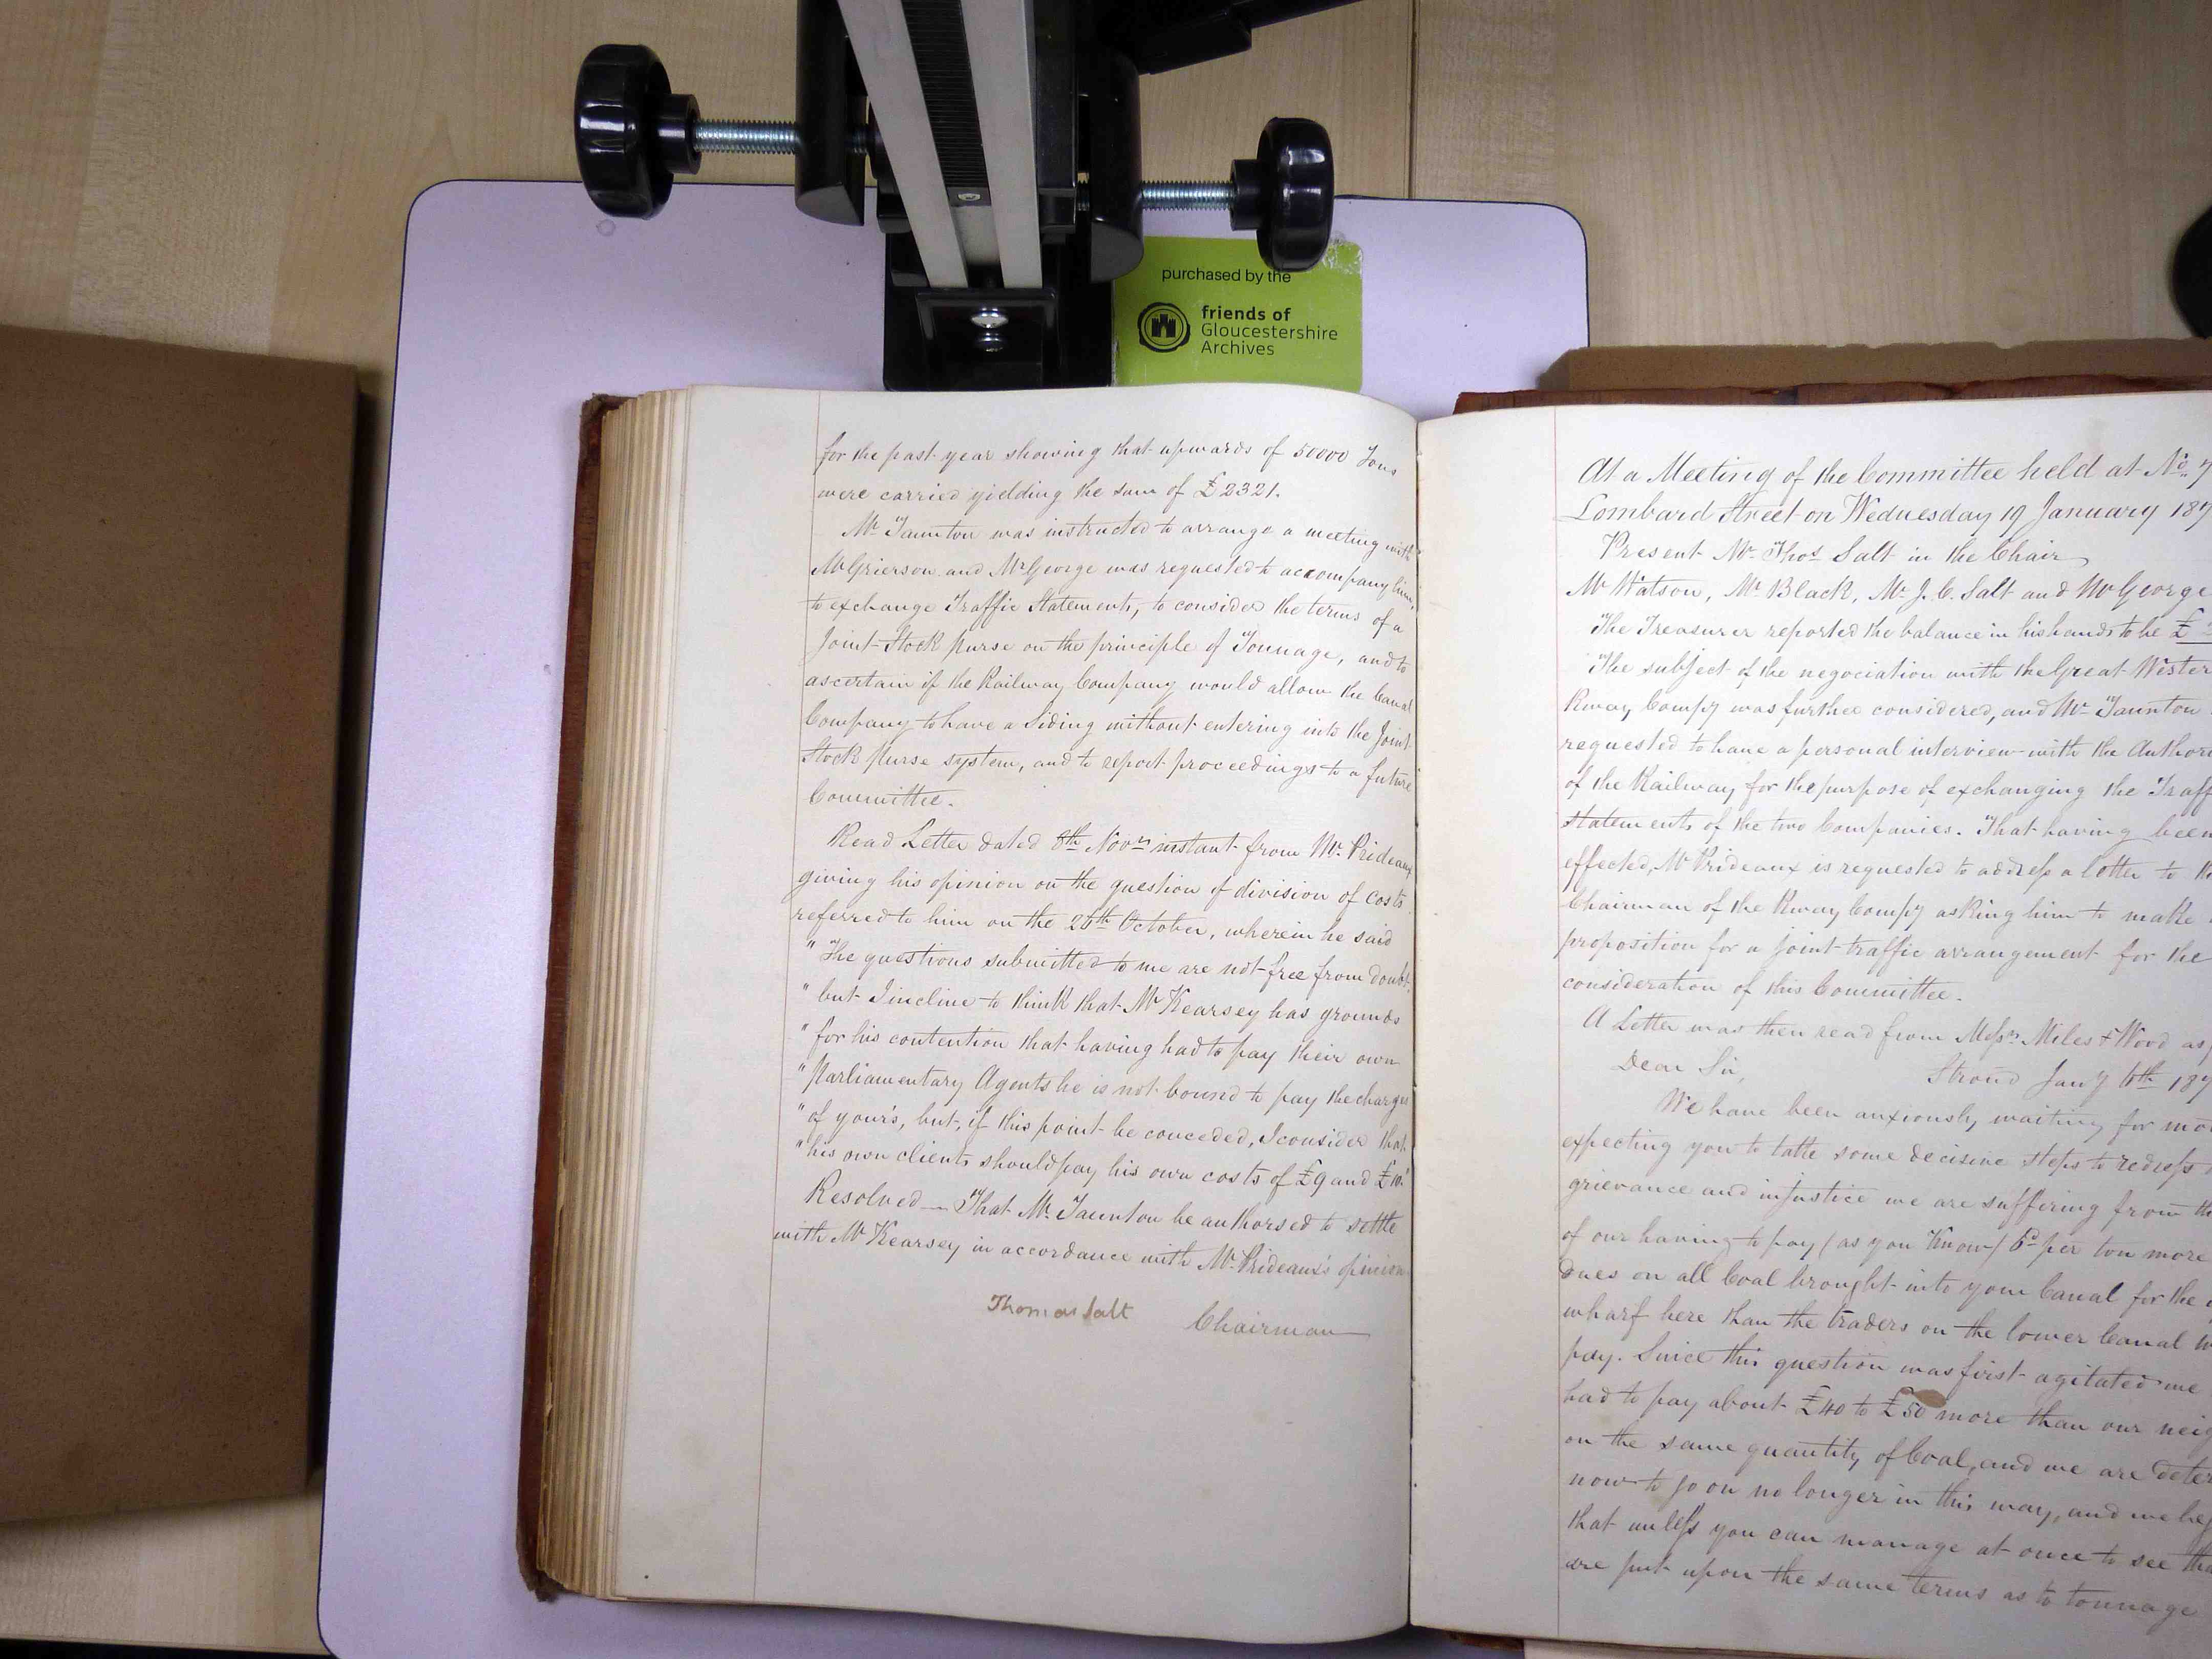 purchased by the
friends of
Gloucestershire
Archives
for the past year showing that upwards of 50000 Tons
were carried yielding the sum of £2321.
Mr. Taunton was instructed to arrange a meeting with
Mr Grierson and Mr George was requested to accompany him,
to exchange Traffic Statements, to consider the terms of a
Joint Stock Purse on the principle of Tonnage, and to
ascertain if the Railway Company would allow the Canal
Company to have a Siding without entering into the Joint
Stock Purse system, and to report proceedings to a future
Committee.
Read Letter dated 8th Novr instant from Mr. Prideaux
giving his opinion on the question of division of costs
referred to him on the 26th October, wherein he said
"The questions submitted to me are not free from doubt,
"but I incline to think that Mr Kearsey has grounds
"for his contention that having had to pay their own
"Parliamentary Agents he is not bound to pay the charges
"of your's, but, if this point be conceded, I consider that
"his own clients should pay his own costs of £9 and £10."
Resolved — That Mr. Taunton be authorsed to settle
with Mr Kearsey in accordance with Mr. Prideaux's opinion
Thomas Salt Chairman
At a Meeting of the Committee held at No. 7
Lombard Street on Wednesday 19 January 187
Present Mr. Thos Salt in the Chair
Mr Watson, Mr Black, Mr. J. C. Salt and Mr George
The Treasurer reported the balance in his hands to be £
The subject of the negociation with the Great Wester
Rway Compy was further considered, and Mr. Taunton
requested to have a personal interview with the Author
of the Railway for the purpose of exchanging the Traff
statements of the two Companies. That having been
effected, Mr Prideaux is requested to address a letter to
Chairman of the Rway Compy asking him to make
proposition for a joint traffic arrangement for the
consideration of this Committee.
A Letter was then read from Messrs. Miles & Wood as
Dear Sir, Stroud Jany 6th 187
We have been anxiously waiting for mo
expecting you to take some decisive steps to redress
grievance and injustice we are suffering from th
of our having to pay (as you Know) 6d per ton more
dues on all Coal brought into your Canal for the
wharf here than the traders on the lower Canal
pay. Since this question was first agitated we
had to pay about £40 to £50 more than our neig
on the same quantity of Coal, and we are deter
now to go on no longer in this way, and we beg
that unless you can manage at once to see tha
are put upon the same terms as to tonnage